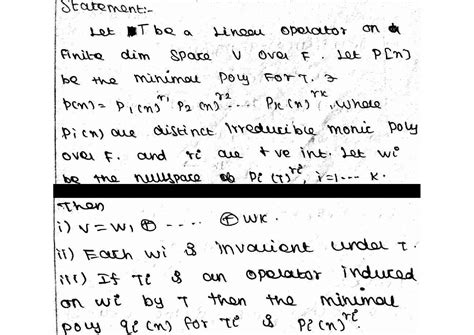 Statement:-
Let T be a Linear Operator on a
finite dim Space V over F. Let P(x)
be the minimal poly for T. ∋
p(x) = P₁(x)^r₁ P₂(x)^r₂ .... Pk(x)^rk, where
Pi(x) are distinct Irreducible monic poly
over F. and ri are +ve int. Let wi
be the nullspace of Pi(T)^ri, i=1--- k.
Then
i) V = W₁ ⊕ ---- ⊕ WK.
ii) Each wi is invarient under T.
iii) If Ti is an operator induced
on wi by T then the minimal
poly qi(x) for Ti is Pi(x)^ri.